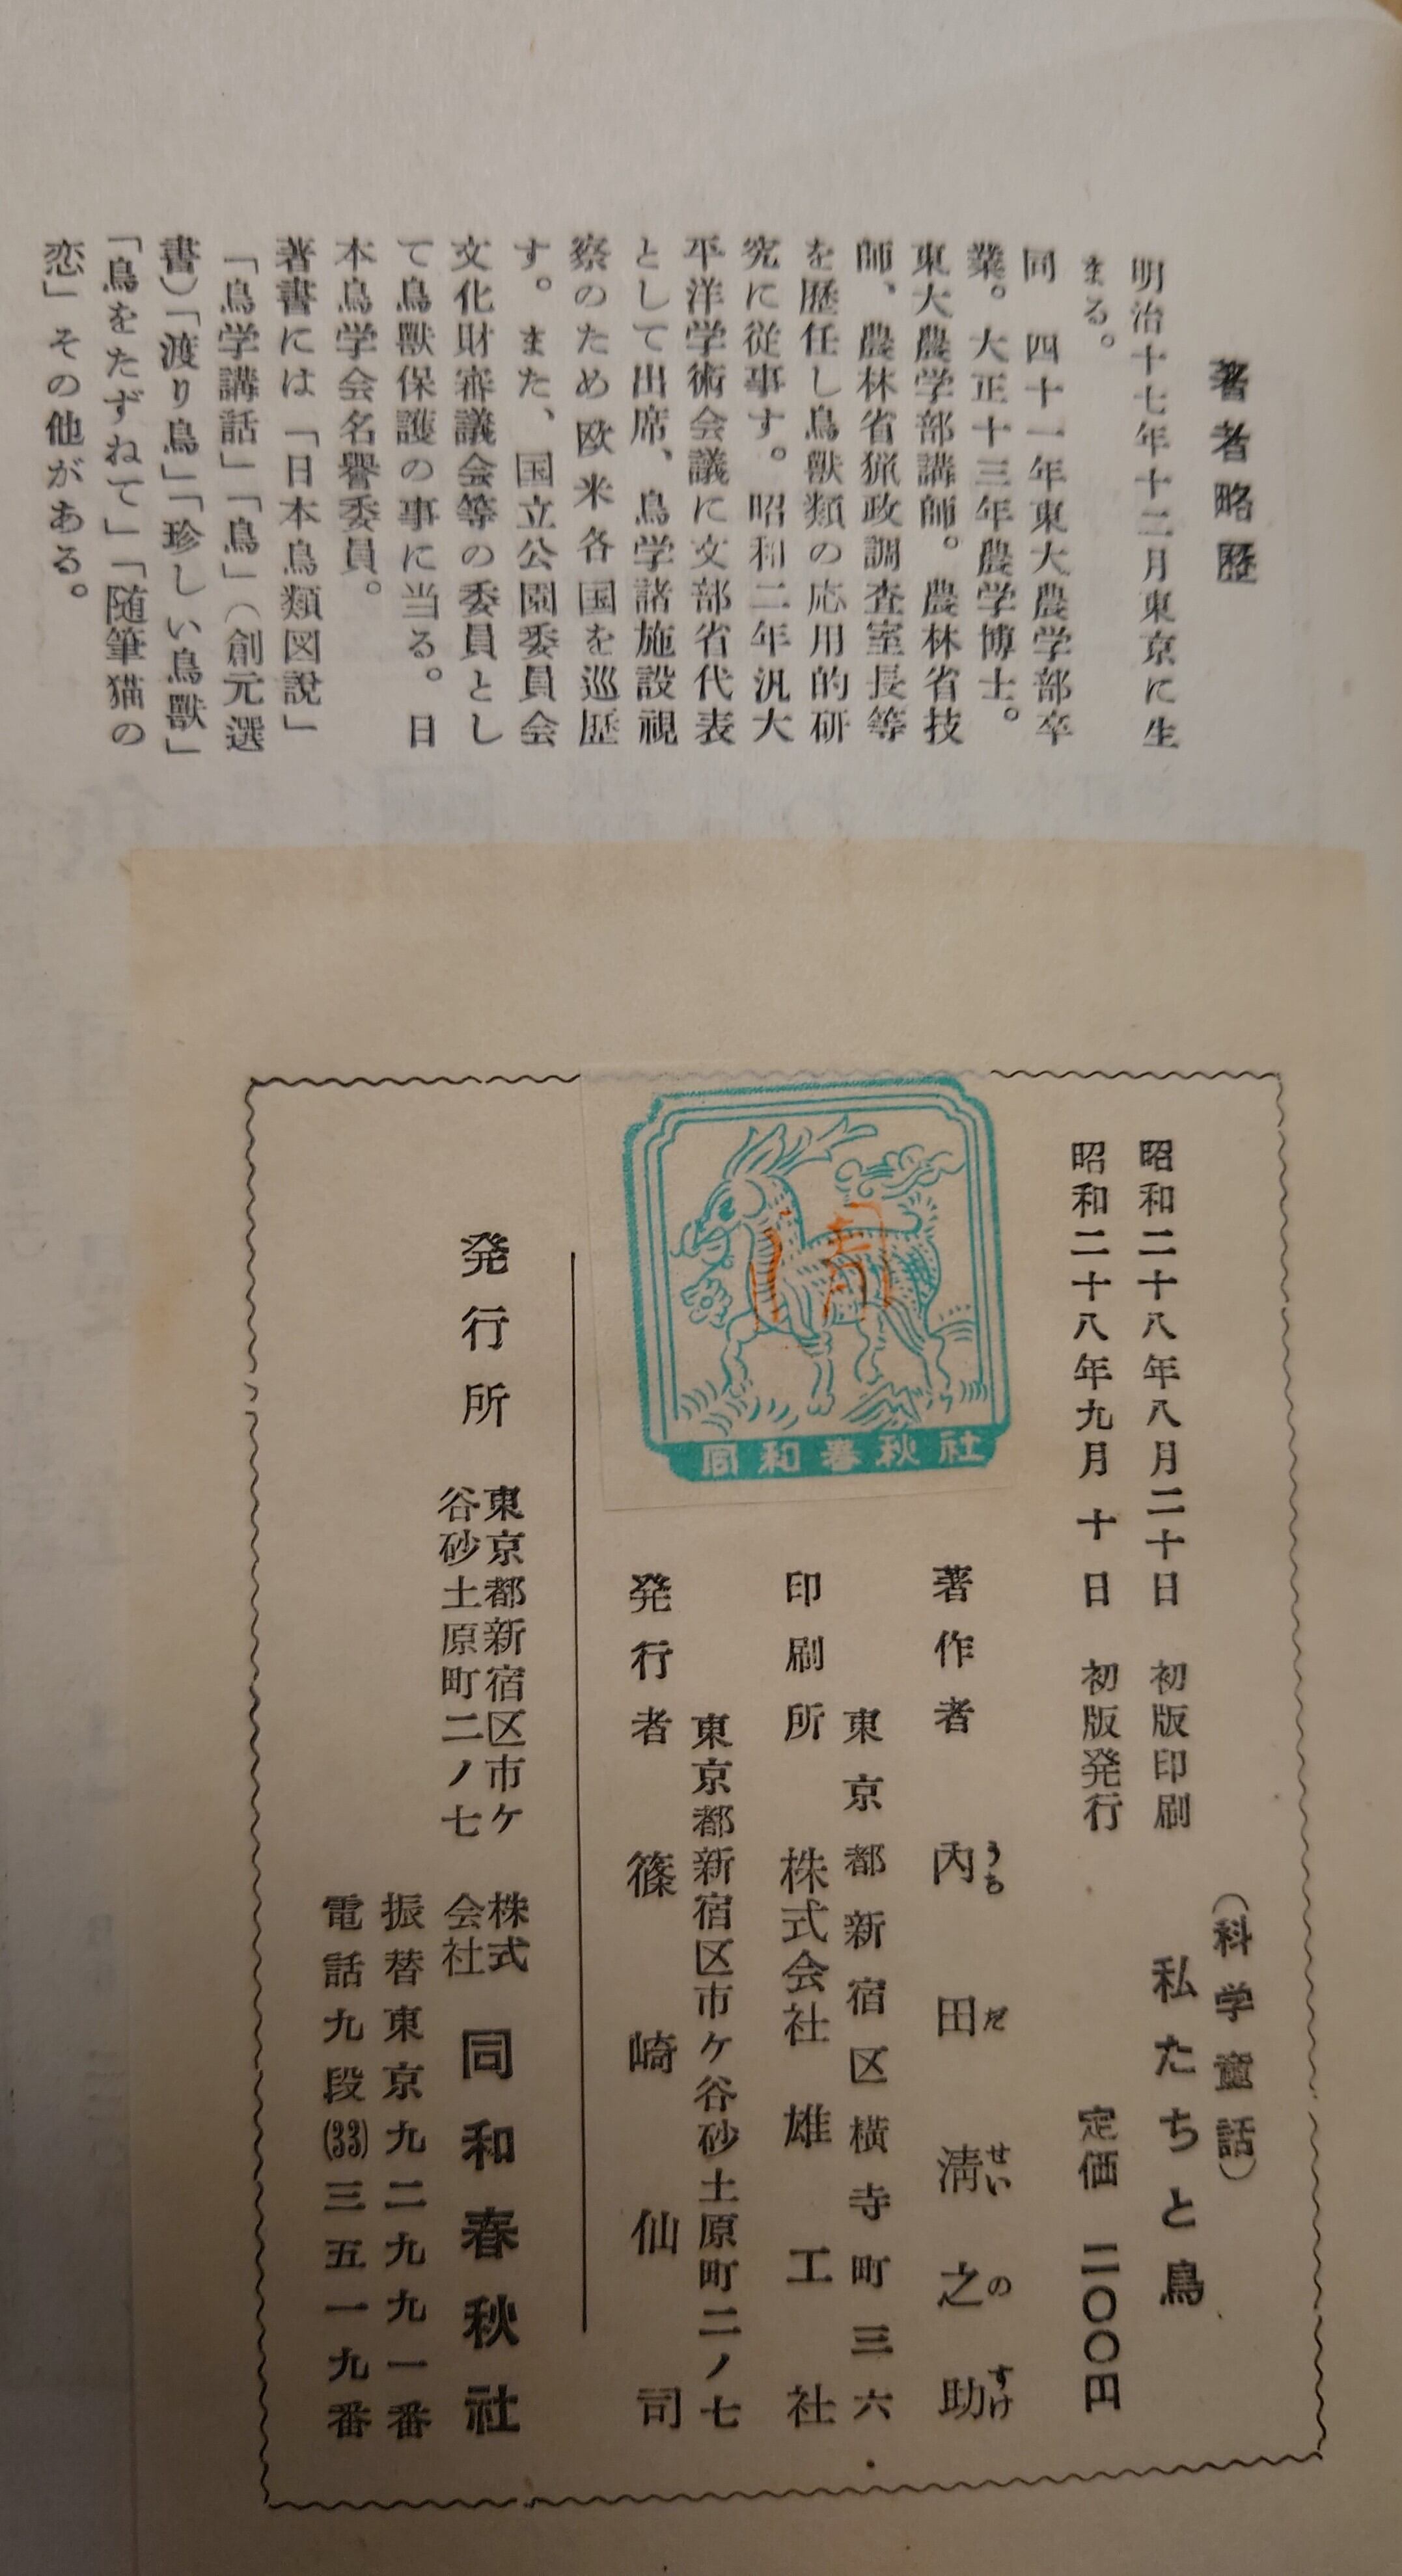 著者略歴
明治十七年十二月東京に生
まる。
同　四十一年東大農学部卒
業。大正十三年農学博士。
東大農学部講師。農林省技
師、農林省猟政調査室長等
を歴任し鳥獣類の応用的研
究に従事す。昭和二年汎大
平洋学術会議に文部省代表
として出席、鳥学諸施設視
察のため欧米各国を巡歴
す。また、国立公園委員会
文化財審議会等の委員とし
て鳥獣保護の事に当る。日
本鳥学会名譽委員。
著書には「日本鳥類図説」
「鳥学講話」「鳥」（創元選
書）「渡り鳥」「珍しい鳥獣」
「鳥をたずねて」「随筆猫の
恋」その他がある。
（科学童話）
私たちと鳥
昭和二十八年八月二十日　初版印刷
昭和二十八年九月十日　初版発行
定価　二〇〇円
うちだせいのすけ
著作者　内田淸之助
東京都新宿区横寺町三六
印刷所　株式会社　雄工社
東京都新宿区市ケ谷砂土原町二ノ七
発行者　篠崎仙司
同和春秋社
発行所
東京都新宿区市ケ
谷砂土原町二ノ七
株式会社　同和春秋社
振替東京九二九九一番
電話九段(33)三五一九番